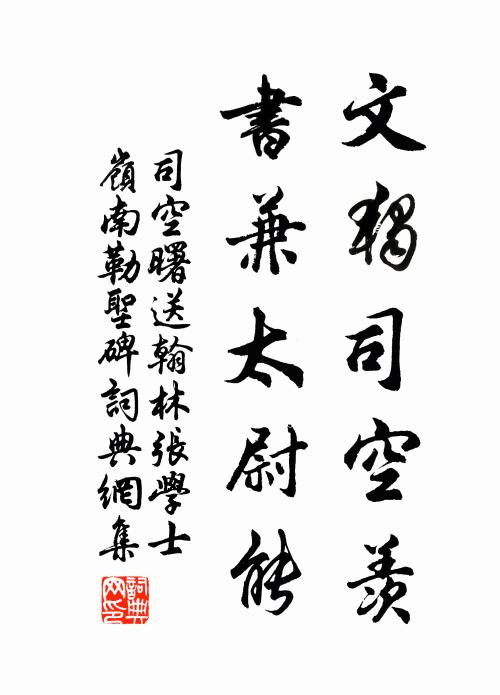 文獨司空羨
書兼太尉能
司空曙送翰林張學士
嶺南勒聖碑詞典網集
詞典网印